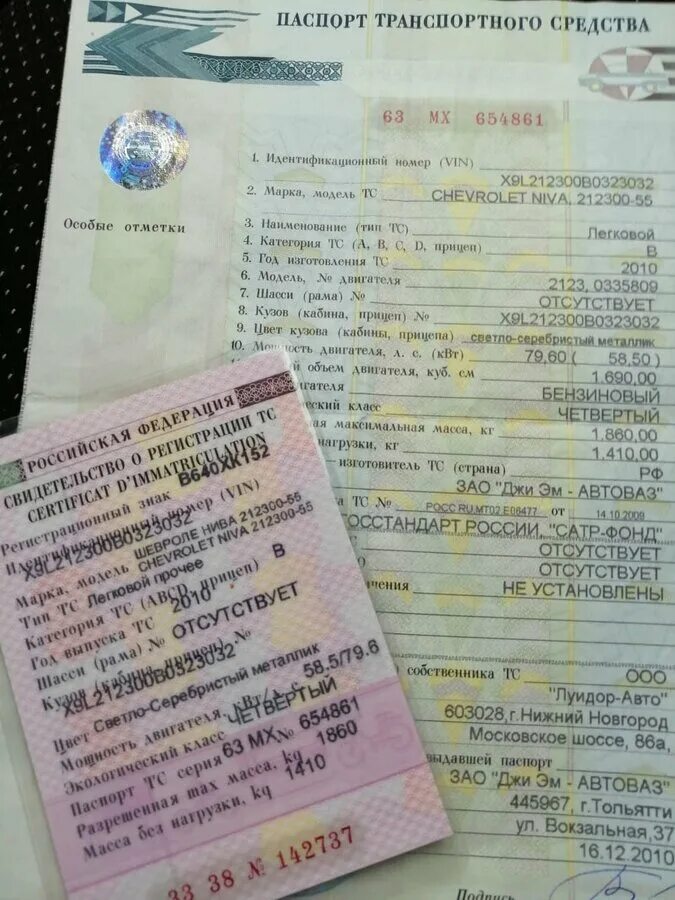 ПАСПОРТ ТРАНСПОРТНОГО СРЕДСТВА
63 МХ 654861
1. Идентификационный номер (VIN)
X9L212300B0323032
2. Марка, модель ТС CHEVROLET NIVA, 212300-55
Особые отметки
3. Наименование (тип ТС) Легковой
4. Категория ТС (А, В, С, D, прицеп) В
5. Год изготовления ТС 2010
6. Модель, № двигателя 2123, 0335809
7. Шасси (рама) № ОТСУТСТВУЕТ
8. Кузов (кабина, прицеп) № X9L212300B0323032
9. Цвет кузова (кабины, прицепа) светло-серебристый металлик
10. Мощность двигателя, л. с. (кВт) 79,60 ( 58,50 )
объем двигателя, куб. см 1.690,00
игателя БЕНЗИНОВЫЙ
еский класс ЧЕТВЕРТЫЙ
максимальная масса, кг 1.860,00
нагрузки, кг 1.410,00
изготовитель ТС (страна) РФ
ЗАО "Джи Эм - АВТОВАЗ"
ТС № РОСС RU.MT02.E06477 от 14.10.2009
ОССТАНДАРТ РОССИИ, "САТР-ФОНД"
ОТСУТСТВУЕТ
ОТСУТСТВУЕТ
ичения НЕ УСТАНОВЛЕНЫ
собственника ТС ООО
"Луидор-Авто"
603028,г.Нижний Новгород
Московское шоссе, 86а,
выдавшей паспорт
ЗАО "Джи Эм - АВТОВАЗ"
445967, г.Тольятти
ул. Вокзальная,37
16.12.2010
Подпись
РОССИЙСКАЯ ФЕДЕРАЦИЯ
СВИДЕТЕЛЬСТВО О РЕГИСТРАЦИИ ТС
CERTIFICAT D'IMMATRICULATION
Регистрационный знак В640ХК152
Идентификационный номер (VIN)
X9L212300B0323032
Марка, модель ШЕВРОЛЕ НИВА 212300-55
CHEVROLET NIVA 212300-55
Тип ТС Легковой прочее
Категория ТС (ABCD, прицеп) В
Год выпуска ТС 2010
Шасси (рама) № ОТСУТСТВУЕТ
Кузов (кабина, прицеп) №
X9L212300B0323032
Цвет Светло-Серебристый металлик
Мощность двигателя, кВт/л. с. 58.5/79.6
Экологический класс ЧЕТВЕРТЫЙ
Паспорт ТС серия 63 МХ № 654861
Разрешенная max масса, kg 1860
Масса без нагрузки, kg 1410
33 38 № 142737